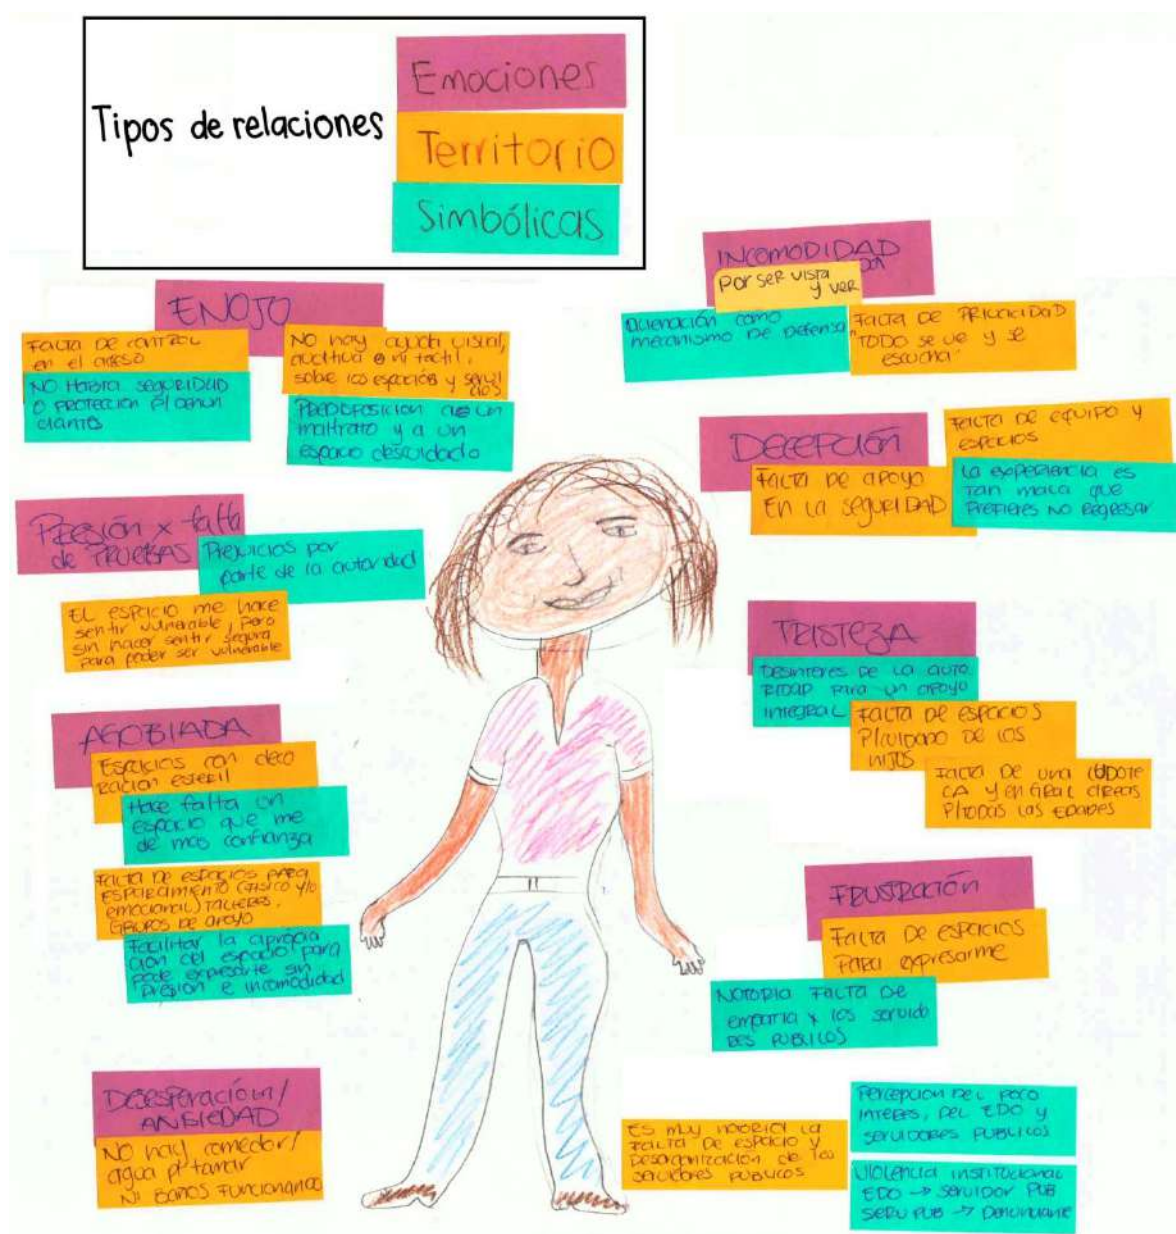 Tipos de relaciones
Emociones
Territorio
Simbólicas
ENOJO
FALTA DE CONTROL
en el acceso
NO HABRA SEGURIDAD
O PROTECCION P/DENUN
CIANTES
No hay ayuda visual,
auditiva o ni tactil,
sobre los espacios y servi
cios
PREDISPOSICION a un
maltrato y a un
espacio descuidado
INCOMODIDAD
Por ser vista
y ver
ALIENACIÓN como
mecanismo de defensa
FALTA DE PRIVACIDAD
"TODO se ve y se
escucha"
DECEPCIÓN
FALTA DE EQUIPO Y
ESPACIOS
FALTA DE APOYO
EN LA SEGURIDAD
LA EXPERIENCIA es
tan mala que
Prefieres NO REGRESAR
PRESIÓN x falta
de PRUEBAS
Prejuicios por
parte de la autoridad
EL ESPACIO me hace
sentir vulnerable, pero
sin hacer sentir segura
para poder ser vulnerable
TRISTEZA
Desinteres de la auto
RIDAD para un apoyo
integral
FALTA DE ESPACIOS
P/cuidado de los
HIJOS
FALTA DE una LUDOTE
CA Y EN GRAL áreas
P/TODAS LAS EDADES
AGOBIADA
Espacios con deco
ración esteril
Hace falta un
espacio que me
de mas confianza
FALTA DE ESPACIOS PARA
ESPARCIMIENTO (FISICO Y/O
emocional) TALLERES,
GRUPOS DE APOYO
Facilitar la apropia
cion del espacio para
pode expresarte sin
Presión e incomodidad
FRUSTRACIÓN
FALTA DE ESPACIOS
PARA expresarme
NOTORIA FALTA DE
empatia x los servido
RES PUBLICOS
DESESPERACIÓN/
ANSIEDAD
No hay comedor/
agua p/tomar
NI BAÑOS FUNCIONANDO
ES muy NOTORIA la
FALTA DE ESPACIO Y
DESORGANIZACION de los
SERVIDORES PUBLICOS
PERCEPCION DEL POCO
INTERES, DEL EDO y
SERVIDORES PUBLICOS
VIOLENCIA INSTITUCIONAL
EDO → SERVIDOR PUB
SERV PUB → DENUNCIANTE